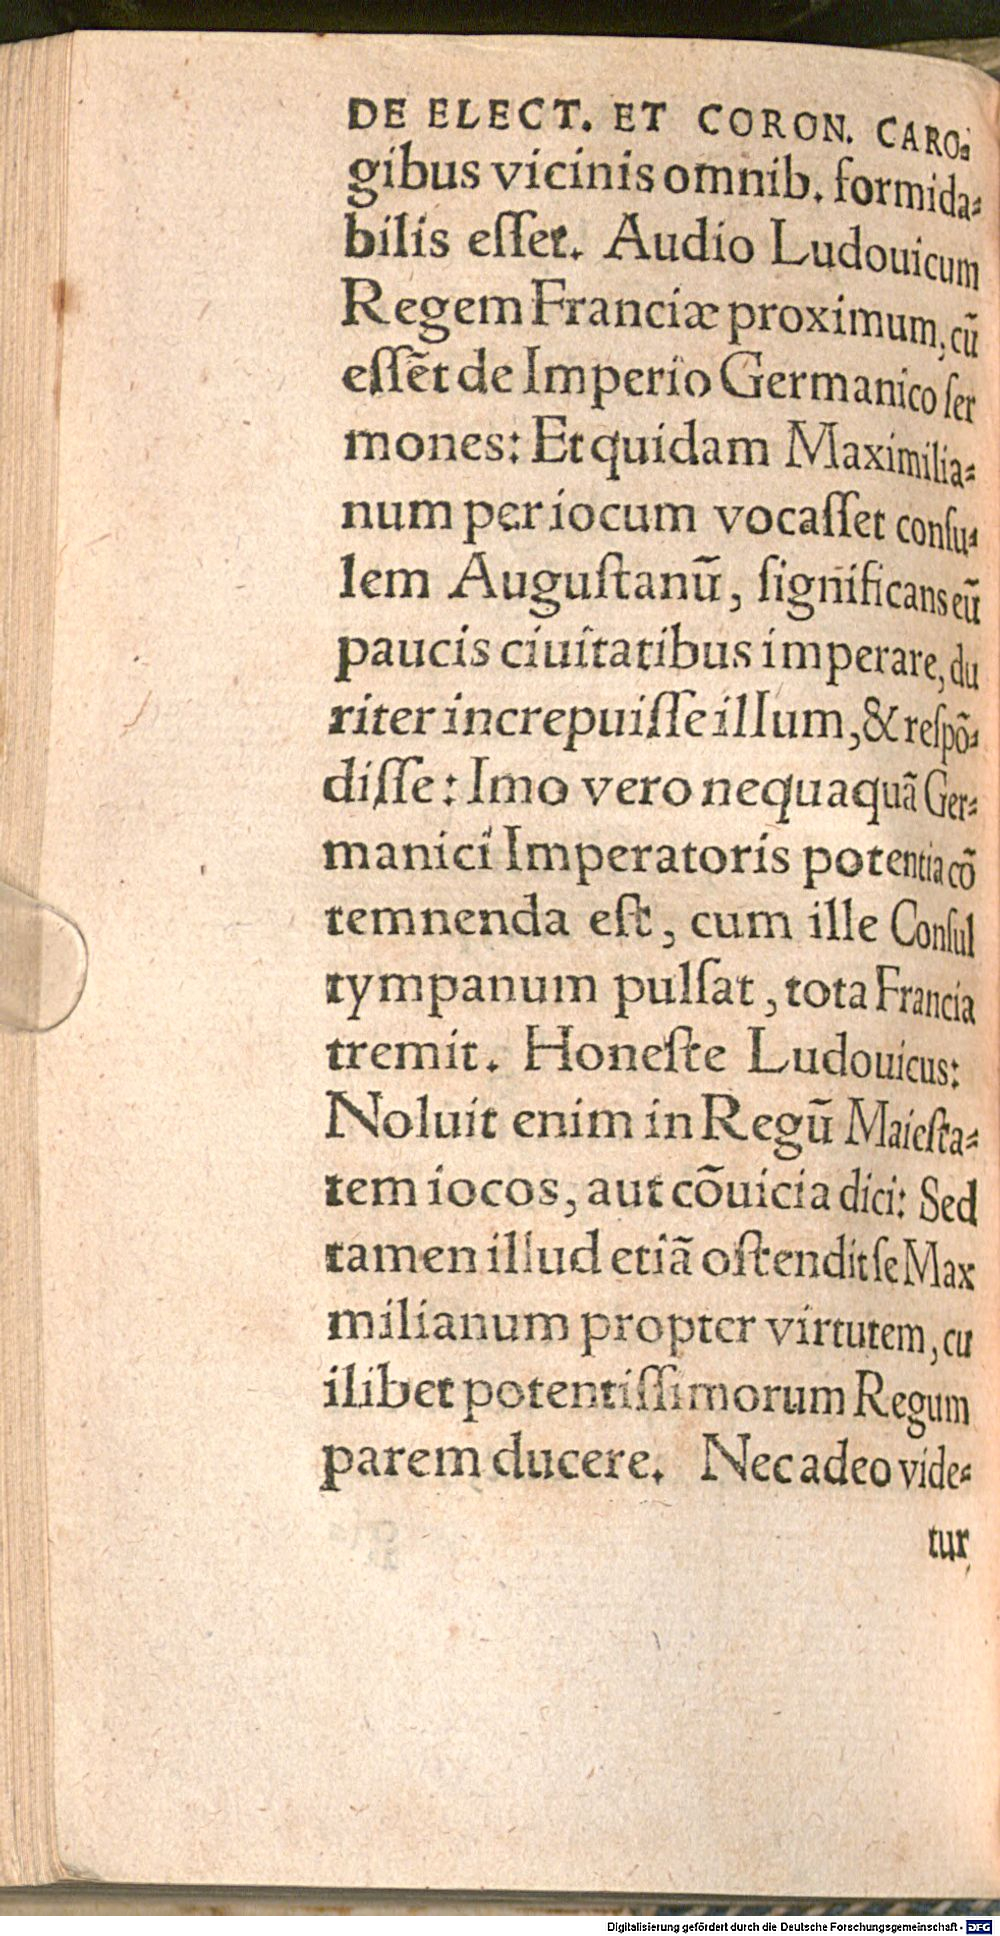 DE ELECT. ET CORON. CARO.
gibus vicinis omnib. formida⸗
bilis eſſet. Audio Ludouicum
Regem Franciæ proximum, cū
eſſēt de Imperio Germanico ſer
mones: Et quidam Maximilia⸗
num per iocum vocaſſet conſu⸗
lem Auguſtanū, ſignificans eū
paucis ciuitatibus imperare, du
riter increpuiſſe illum, & reſpō⸗
diſſe: Imo vero nequaquā Ger⸗
manici Imperatoris potentia cō
temnenda eſt, cum ille Conſul
tympanum pulſat, tota Francia
tremit. Honeſte Ludouicus:
Noluit enim in Regū Maieſta⸗
tem iocos, aut cōuicia dici: Sed
tamen illud etiā oſtendit ſe Max
milianum propter virtutem, cu
ilibet potentiſſimorum Regum
parem ducere. Nec adeo vide⸗
tur
Digitalisierung gefördert durch die Deutsche Forschungsgemeinschaft - DFG